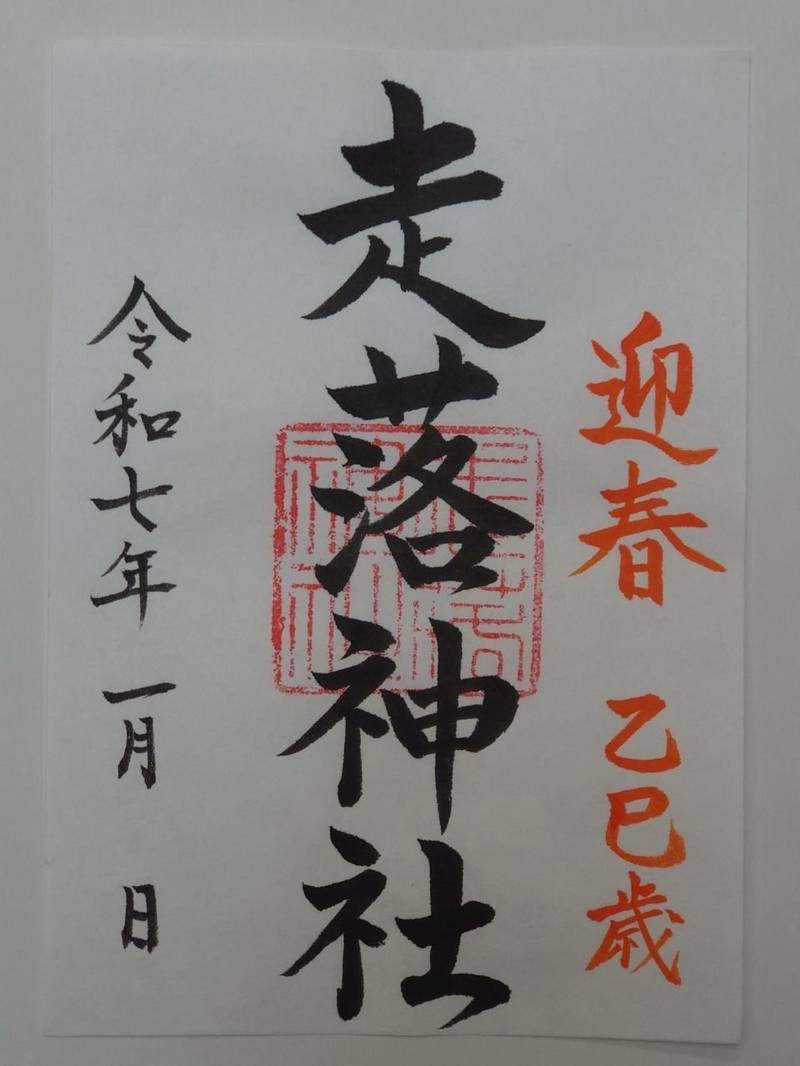 迎春 乙巳歳
走落神社
令和七年 一月 日